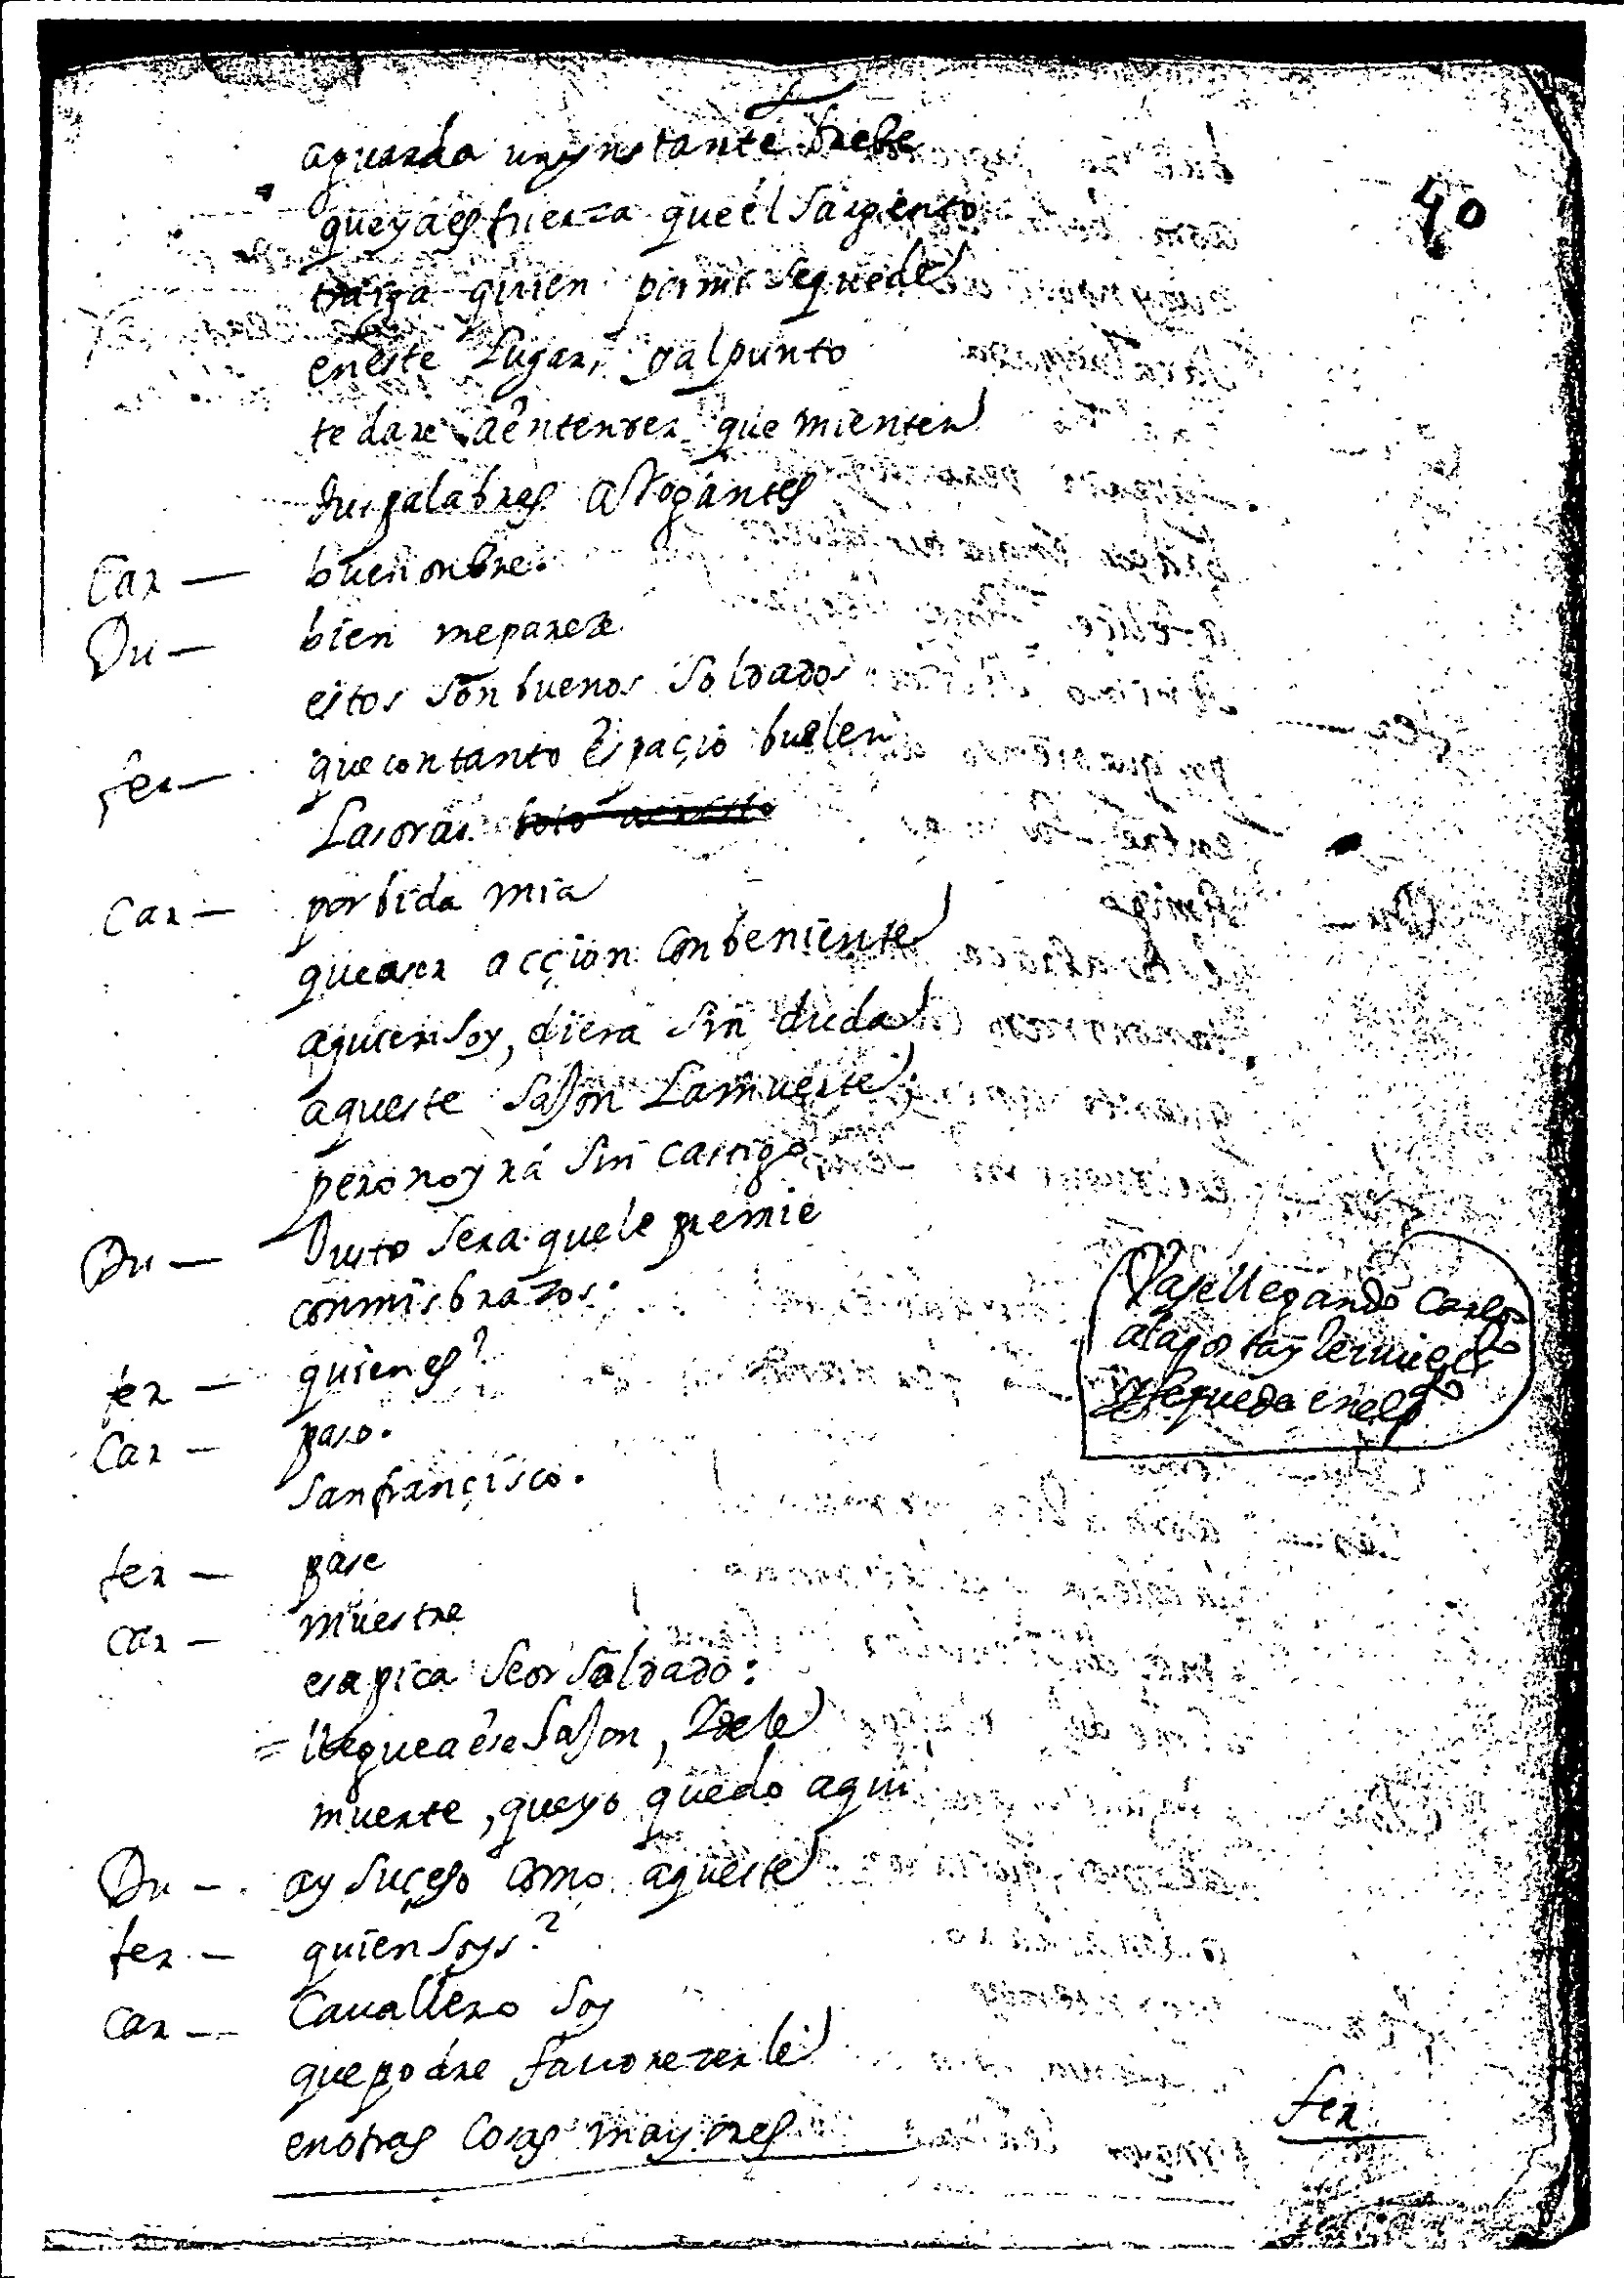 40
aguarda un ynstante brebe
que ya es fuerza que el Sargento
trayga quien por mi se quede
en este Lugar, y al punto
te dare a entender que mienten
tus palabras arrogantes
Car — buen onbre.
Du — bien me pareze
estos son buenos Soldados
fer — que con tanto espaçio buelen
Las oras
Car — por bida mia
que a ser acçion conbeniente
a quien soy, diera sin duda
a queste Sajon La muerte;
pero no yrá sin castigo
Du — Justo sera que le premie
con mis brazos.
Vase llegando Carlos
a la posta y
y se queda en el
fer — quien es?
Car — paso.
San françisco.
fer — pase
Car — muestre
esa pica Seor Soldado:
= llegue a ese Sajon, y dele
muerte, que yo quedo aqui
Du — ay suçeso como aqueste
fer — quien soys?
Car — Cauallero soy
que podre fauorezerle
en otras cosas mayores
fer